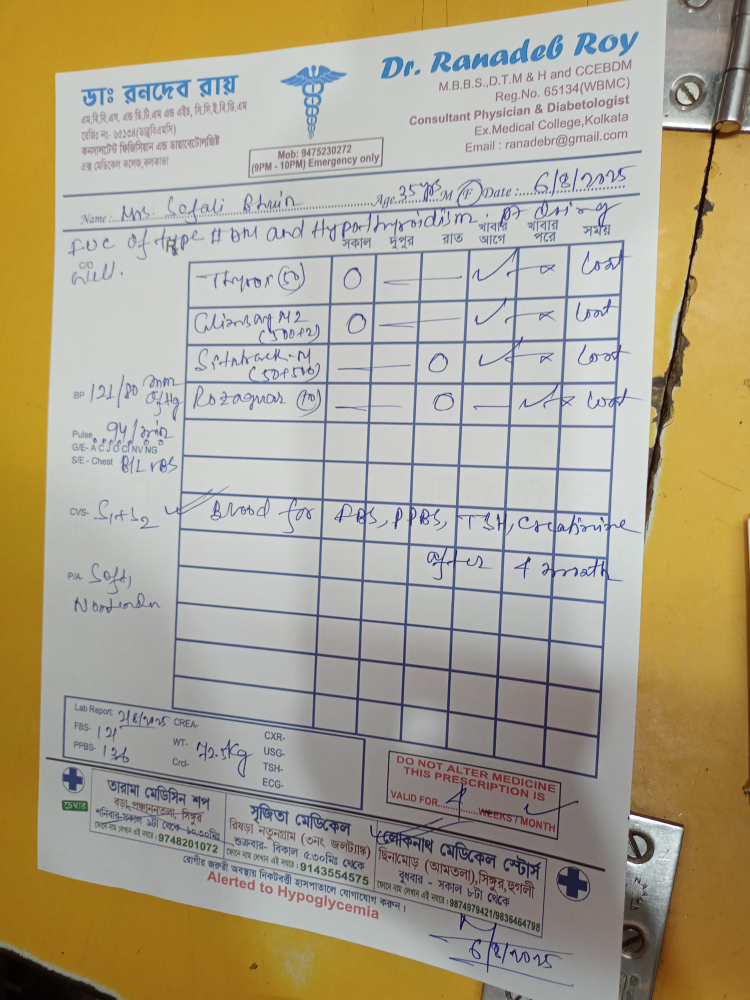 ডাঃ রনদেব রায়
এম.বি.বি.এস, এন্ড ডি.টি.এম এন্ড এইচ, সি.সি.ই.বি.ডি.এম
রেজিঃ নং- ৬৫১৩৪(ডাব্লুবিএমসি)
কনসালটেন্ট ফিজিসিয়ান এন্ড ডায়াবেটোলজিষ্ট
এক্স মেডিকেল কলেজ,কলকাতা
Mob: 9475230272
(9PM - 10PM) Emergency only
Dr. Ranadeb Roy
M.B.B.S.,D.T.M & H and CCEBDM
Reg.No. 65134(WBMC)
Consultant Physician & Diabetologist
Ex.Medical College,Kolkata
Email : ranadebr@gmail.com
Name : Mrs. Sefali Age 35 yrs M (F) Date : 6/8/2025
of Type II DM and Hypothyroidism. Pt doing
C/O well.
সকাল দুপুর রাত খাবার আগে খাবার পরে সময়
Thyrox (50) O — — ✓ × Cont
M2 (500+2) O — — ✓ × Cont
(50+500) — — O ✓ × Cont
(10) — — O — ✓ × Cont
BP 121/80 mm of Hg
Pulse 94/min
G/E- A C J O C NV NG
S/E - Chest B/L VBS
CVS- S1+S2
Blood for FBS, PPBS, TSH, Creatinine
after 4 month
P/A Soft,
Lab Report: 2/8/2025 CREA- CXR-
FBS- 121 WT- 72.5kg USG-
PPBS- 136 Crd- TSH-
ECG-
DO NOT ALTER MEDICINE
THIS PRESCRIPTION IS
VALID FOR 4 WEEKS / MONTH
চেম্বার
তারামা মেডিসিন শপ
বড়া,পঞ্চাননতলা, সিঙ্গুর
শনিবার-সকাল ৯টা থেকে ১০.৩০মিঃ
ফোনে নাম লেখান এই নম্বরে : 9748201072
সৃজিতা মেডিকেল
রিষড়া নতুনগ্রাম (৩নং জলট্যাঙ্ক)
শুক্রবার- বিকাল ৫.৩০মিঃ থেকে
ফোনে নাম লেখান এই নম্বরে : 9143554575
লোকনাথ মেডিকেল স্টোর্স
ছিনামোড় (আমতলা),সিঙ্গুর,হুগলী
বুধবার - সকাল ৮টা থেকে
ফোনে নাম লেখান এই নম্বরে : 9874979421/9836464798
রোগীর জরুরী অবস্থায় নিকটবর্ত্তী হাসপাতালে যোগাযোগ করুন।
Alerted to Hypoglycemia
6/8/2025